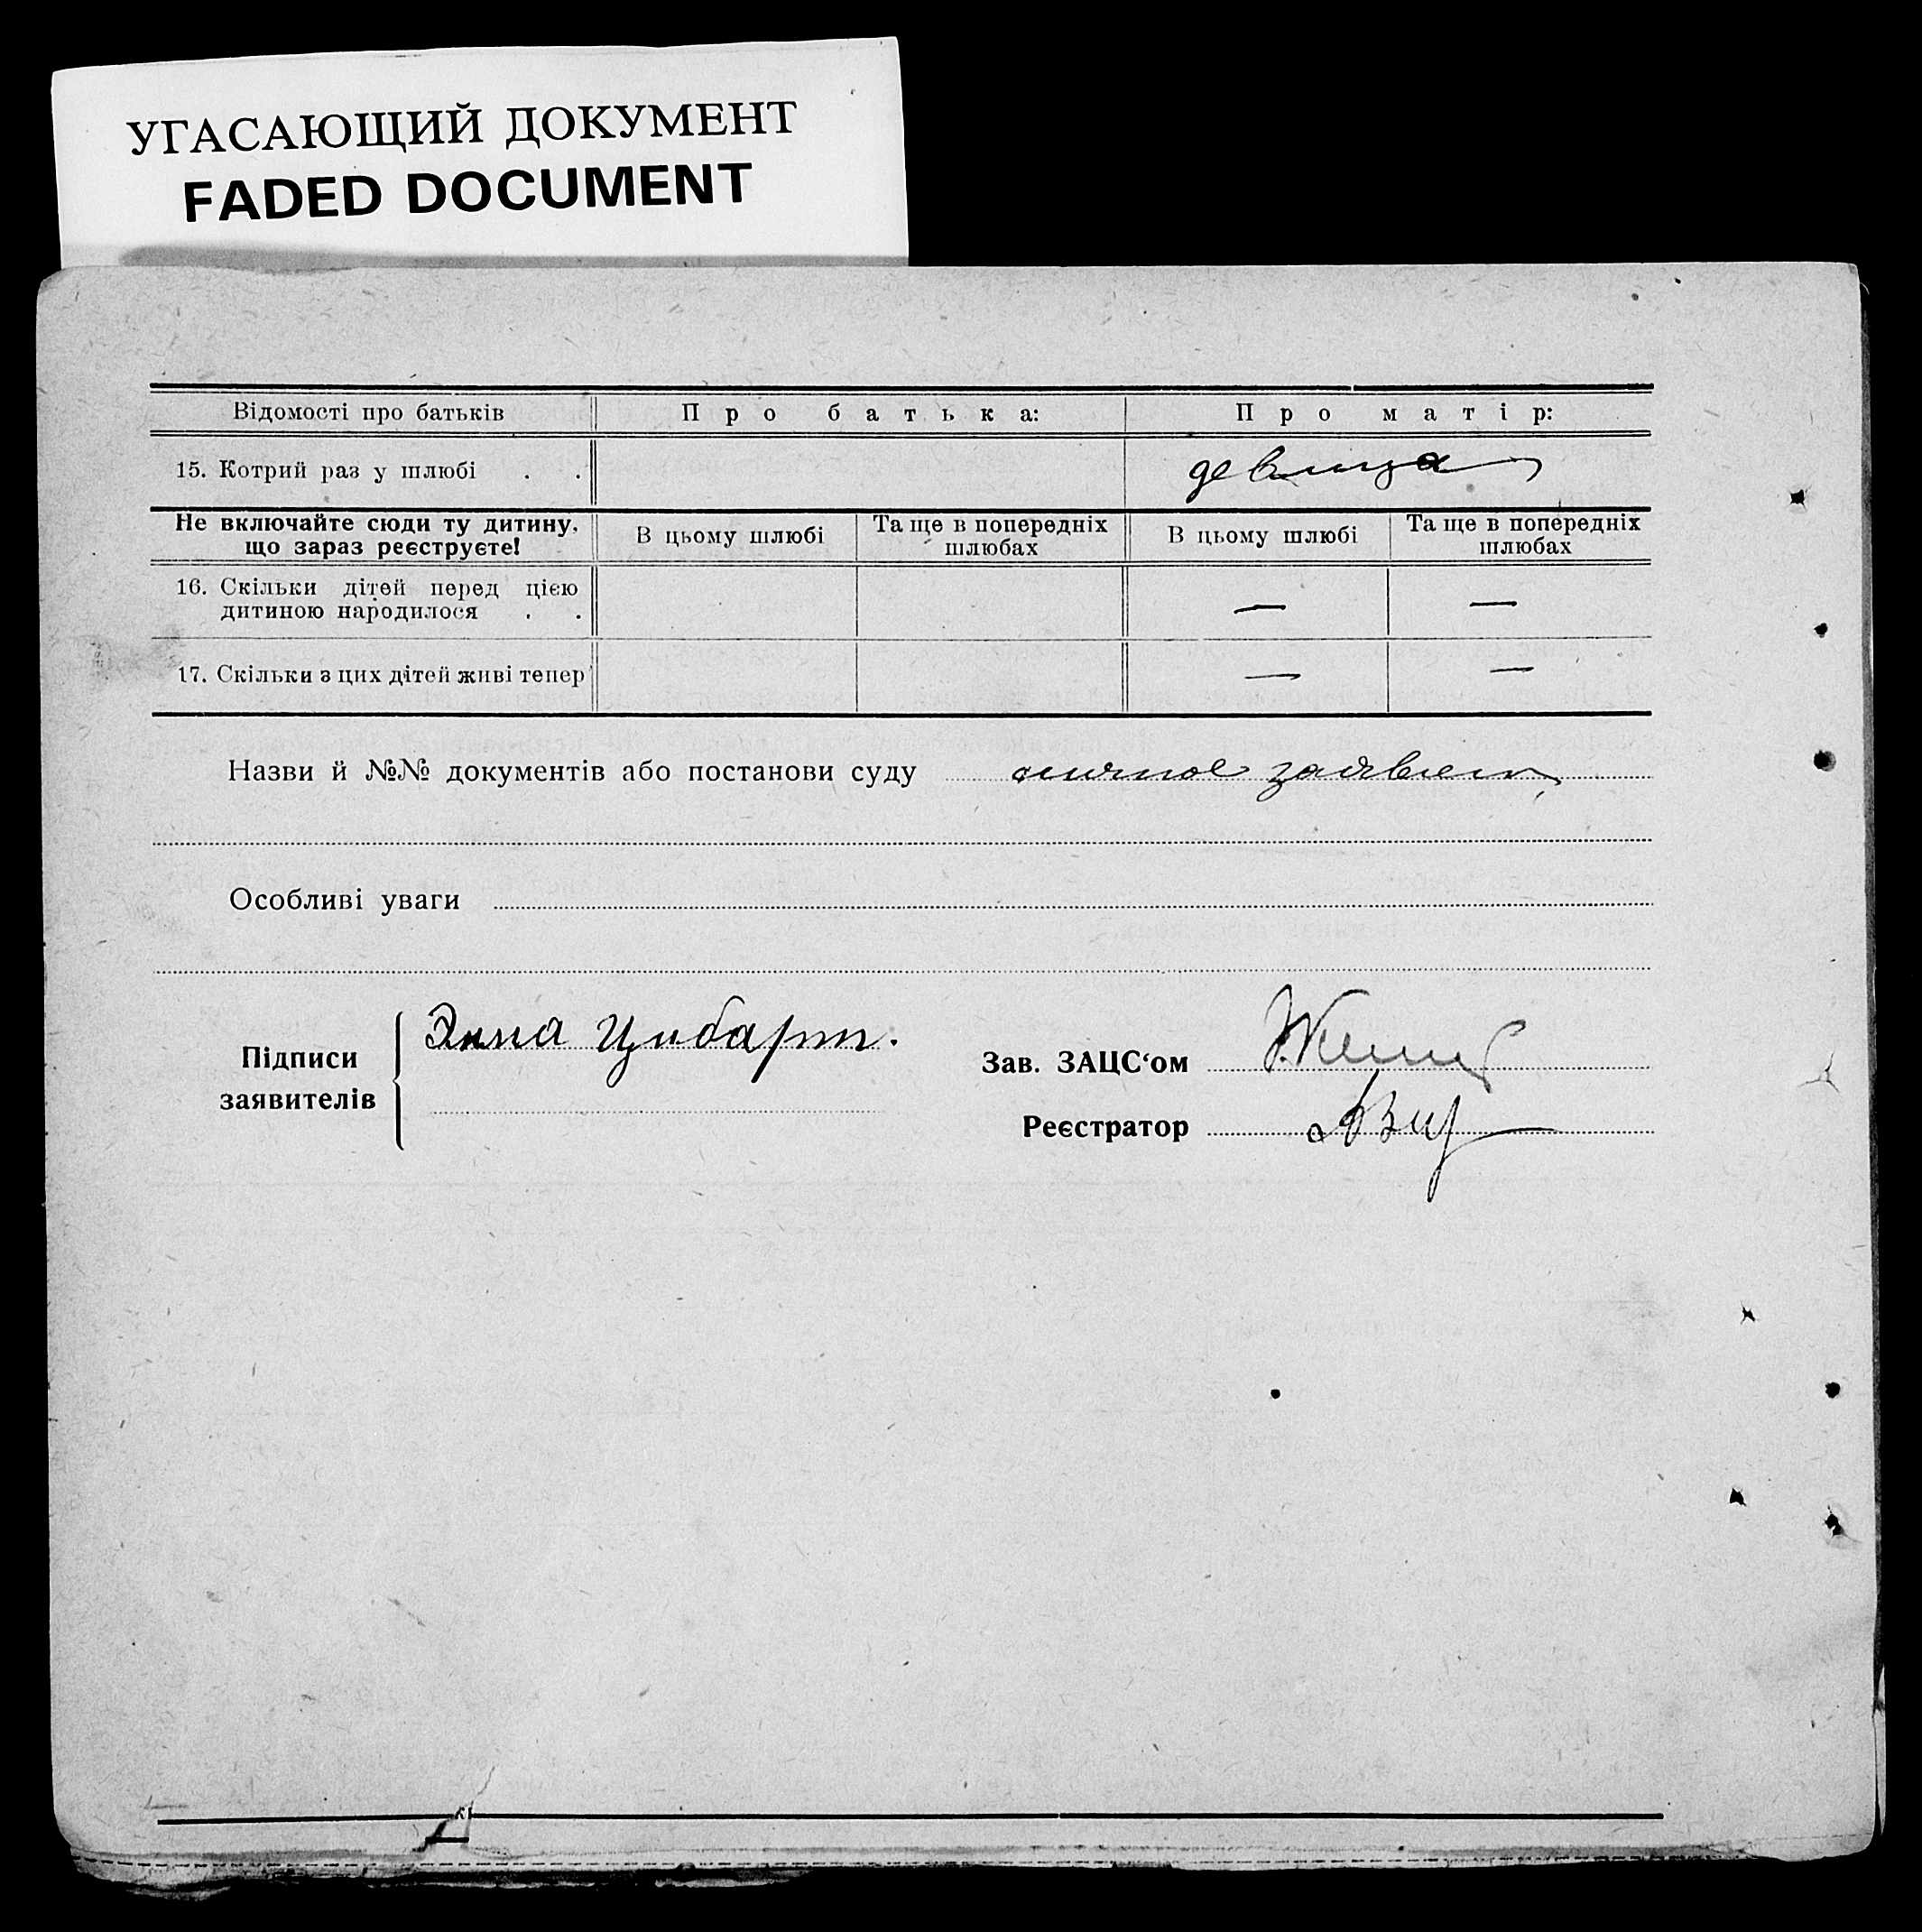 УГАСАЮЩИЙ ДОКУМЕНТ
FADED DOCUMENT
Відомості про батьків Про батька: Про матір:
15. Котрий раз у шлюбі . . девица
Не включайте сюди ту дитину, що зараз реєструєте! В цьому шлюбі Та ще в попередніх шлюбах В цьому шлюбі Та ще в попередніх шлюбах
16. Скільки дітей перед цією дитиною народилося . . — —
17. Скільки з цих дітей живі тепер — —
Назви й №№ документів або постанови суду личное заявлен
Особливі уваги
Підписи заявителів Эмма Цибарт.
Зав. ЗАЦС‘ом
Реєстратор